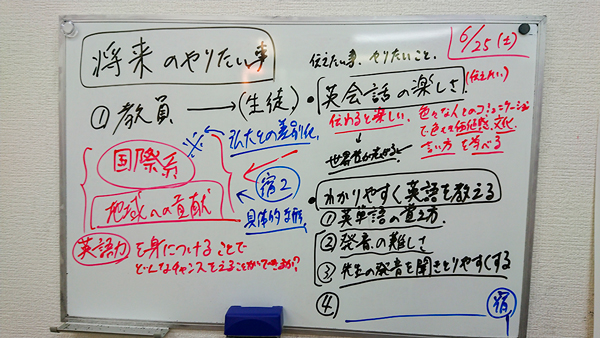 将来のやりたい事
① 教員 → (生徒)
私大との差別化
国際系
地域への貢献
宿2
具体的
英語力を身につけることで
どんなチャンスをえることができますか?
6/25(土)
伝えたい事、やりたいこと、
・英会話の楽しさ(伝えたい)
伝わると楽しい、色々な人とのコミュニケーション
で色々な価値感、文化、
言い方を学べる
・わかりやすく英語を教える
① 英単語の覚え方
② 発音の難しさ
③ 先生の発音を聞きとりやすくする
④
宿